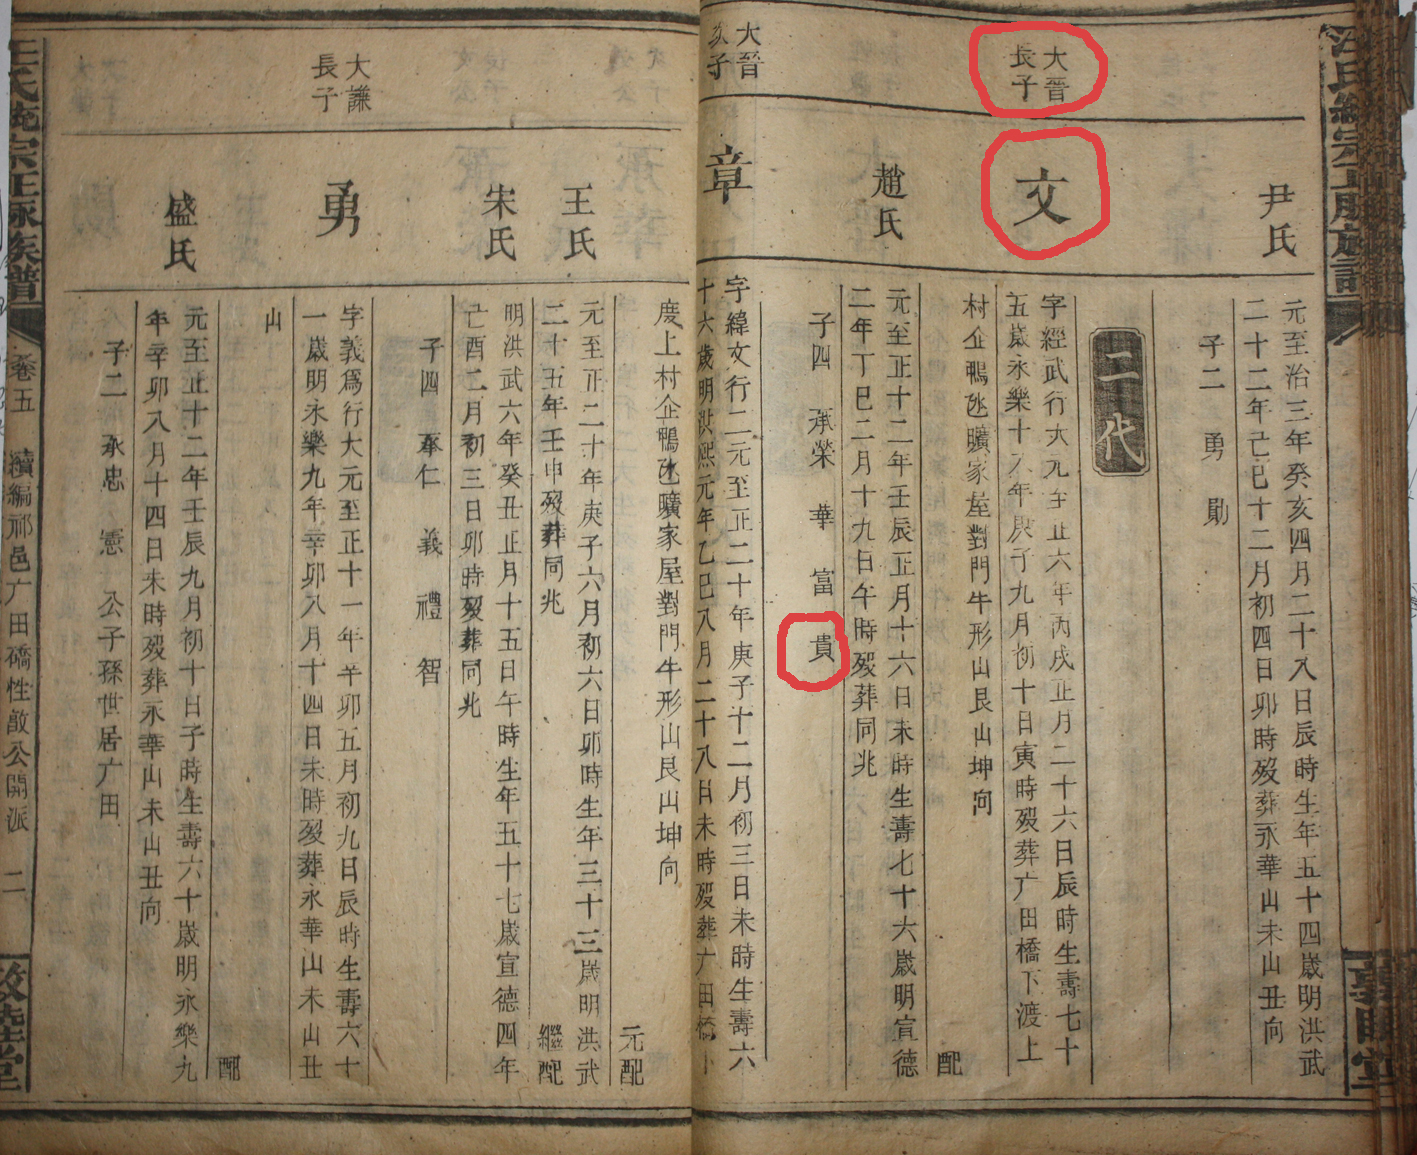 尹氏
元至治三年癸亥四月二十八日辰時生年五十四歲明洪武
二十二年己巳十二月初四日卯時歿葬永華山未山丑向
子二 勇 勛
二代
大晉
長子
文
字經武行大元至正六年丙戌正月二十六日辰時生壽七十
五歲永樂十八年庚子九月初十日寅時歿葬广田橋下渡上
村企鴨氹曠家屋對門牛形山艮山坤向
配
趙氏
元至正十二年壬辰正月十六日未時生壽七十六歲明宣德
二年丁巳二月十九日午時歿葬同兆
子四 承榮 華 富 貴
大晉
次子
章
字緯文行二元至正二十年庚子十二月初三日未時生壽六
十六歲明洪熙元年乙巳八月二十八日未時歿葬广田橋下
度上村企鴨氹曠家屋對門牛形山艮山坤向
元配
王氏
元至正二十年庚子六月初六日卯時生年三十三歲明洪武
二十五年壬申歿葬同兆
繼配
朱氏
明洪武六年癸丑正月十五日午時生年五十七歲宣德四年
己酉二月初三日卯時歿葬同兆
子四 承仁 義 禮 智
大謙
長子
勇
字義爲行大元至正十一年辛卯五月初九日辰時生壽六十
一歲明永樂九年辛卯八月十四日未時歿葬永華山未山丑
山
配
盛氏
元至正十二年壬辰九月初十日子時生壽六十歲明永樂九
年辛卯八月十四日未時歿葬永華山未山丑向
子二 承忠 憲 公子孫世居广田
氏統宗正脉族譜
卷五
續編祁邑广田橋性敢公開派
二